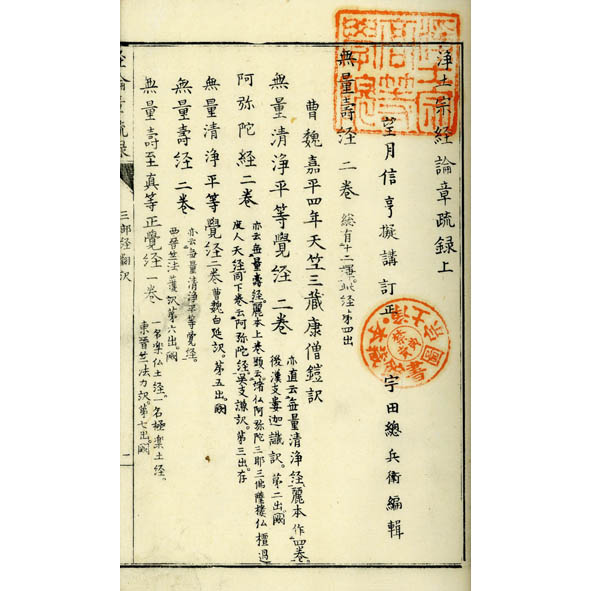 浄土宗経論章疏録上
望月信亨擬講訂正 宇田總兵衛編輯
無量壽経二卷 總有十二譯此経第四出
曹魏嘉平四年天竺三藏康僧鎧訳
無量清浄平等覺経二卷 亦直云無量清浄経麗本作四卷。
後漢支婁迦讖訳。第二出闕
阿弥陀経二卷 亦云無量壽経。麗本上卷題云諸仏阿弥陀三耶三佛薩樓仏檀過
度人天経同下卷云阿弥陀経。吳支謙訳。第三出存
無量清浄平等覺経二卷 曹魏白延訳。第五出。闕
無量壽経二卷 亦云無量清浄平等覚経。
西晉竺法護訳。第六出。闕
無量壽至真等正覺経一卷 一名楽仏土経。一名極楽土経。
東晉竺法力訳。第七出。闕
経論章疏録
三部経翻訳
一